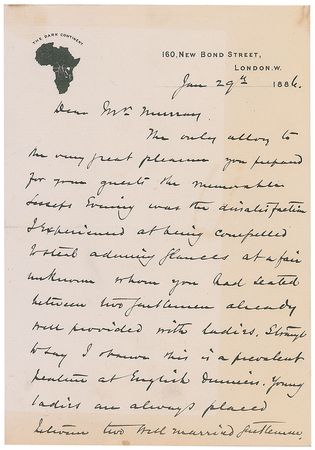 THE DARK CONTINENT
160, NEW BOND STREET,
LONDON. W.
Jan 29th 1886.
Dear Mrs. Murray.
The only alloy to
the very great pleasure you prepared
for your guests the memorable
Evening was the dissatisfaction
I experienced at being compelled
to steal admiring glances at a fair
unknown whom you had seated
between two gentlemen already
well provided with ladies. Strange
to say I observe this is a prevalent
feature at English Dinners. Young
ladies are always placed
between two well married gentlemen,